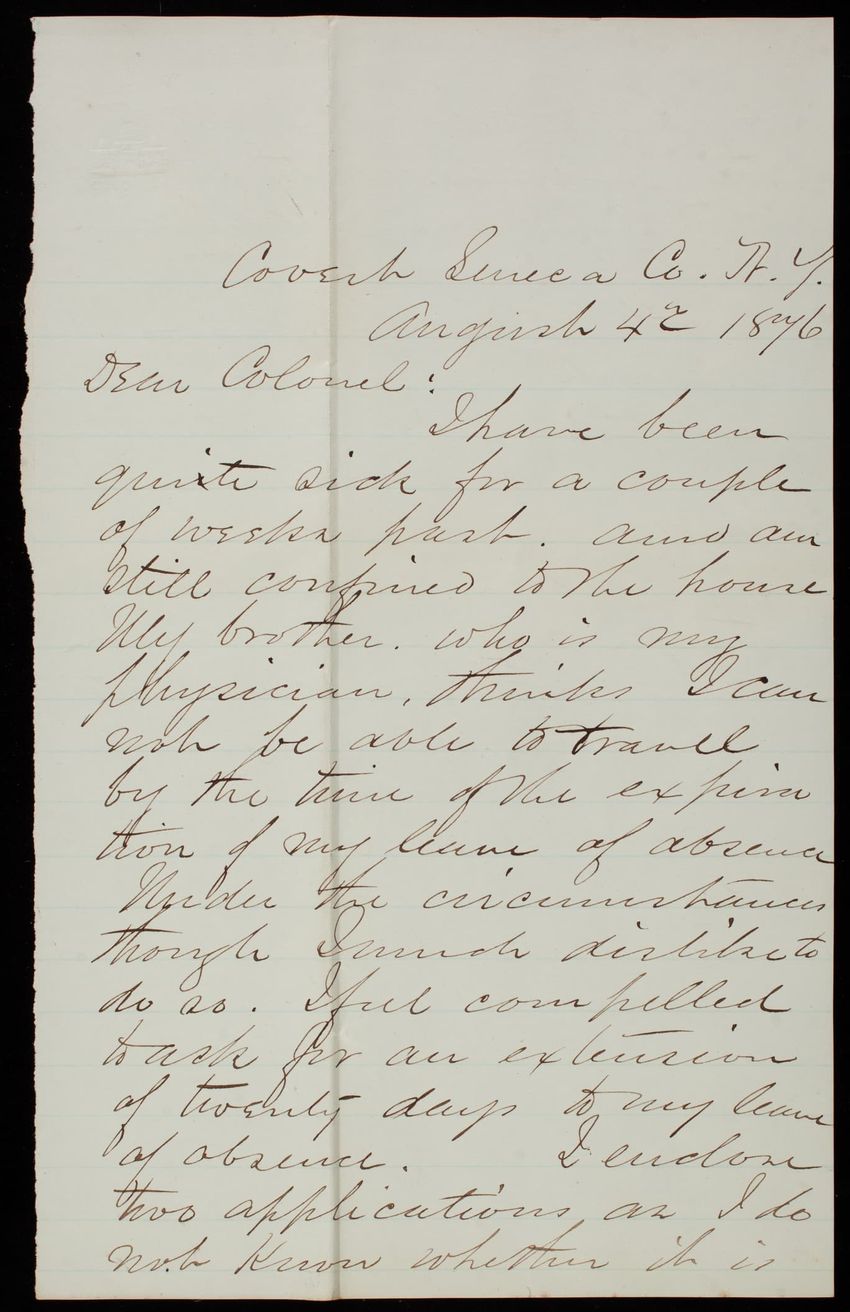 Covert Seneca Co. N.Y.
August 4th 1876
Dear Colonel:
I have been
quite sick for a couple
of weeks past. and am
still confined to the house
My brother. who is my
physician, thinks I can
not be able to travel
by the time of the expira
tion of my leave of absence
Under the circumstances
though I much dislike to
do so. I feel compelled
to ask for an extension
of twenty days to my leave
of absence. I enclose
two applications as I do
not know whether it is